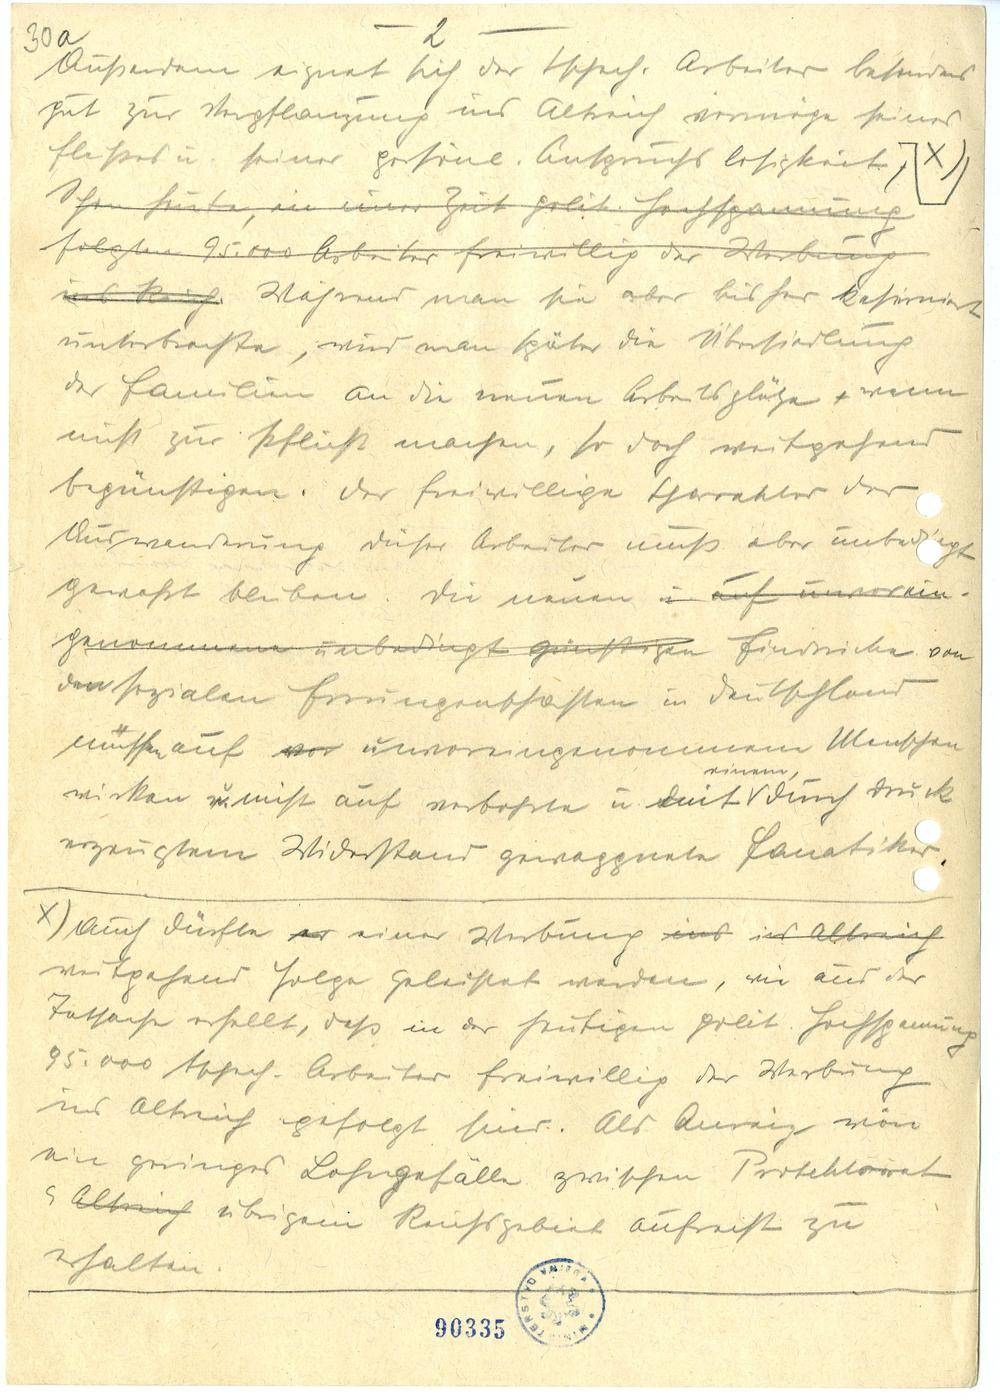 30a
— 2 —
Außerdem eignet sich der tschech. Arbeiter besonders
gut zur Verpflanzung ins Altreich vermöge seines
Fleißes u. seiner persönl. Anspruchslosigkeit, X)
Schon heute, in einer Zeit polit. Hochspannung
folgten 95.000 Arbeiter freiwillig der Werbung
ins Reich. Während man sie aber bisher kaserniert
unterbrachte, wird man später die Übersiedlung
der Familien an die neuen Arbeitsplätze, wenn
nicht zur Pflicht machen, so doch weitgehend
begünstigen. Der freiwillige Charakter der
Auswanderung dieser Arbeiter muß aber unbedingt
gewahrt bleiben. Die neuen auf unvorein-
genommene unbedingt günstigen Eindrücke von
den sozialen Errungenschaften in Deutschland
müssen auf vor unvoreingenommene Menschen
wirken u. nicht auf verbohrte u. mit durch Druck
einem,
erzeugtem Widerstand gewappnete Fanatiker.
X) Auch dürfte er einer Werbung ins ins Altreich
weitgehend Folge geleistet werden, wie aus der
Tatsache erhellt, daß in der heutigen polit. Hochspannung
95.000 tschech. Arbeiter freiwillig der Werbung
ins Altreich gefolgt sind. Als Anreiz wäre
ein geringes Lohngefälle zwischen Protektorat
Altreich übrigem Reichsgebiet aufrecht zu
erhalten.
90335
MINISTERSTVO VNITRA